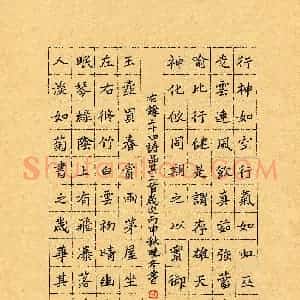 行神如空行氣如虹巫
走雲連風飲真茹強蓄
喻彼行健是謂存雄天
神化攸同期之以實御
右錄二十四詩品二首歲次丙申秋晚
玉壺買春賞雨茅屋坐
左右修竹白雲初晴幽
眠琴綠陰上有飛瀑落
人淡如菊書之歲華其